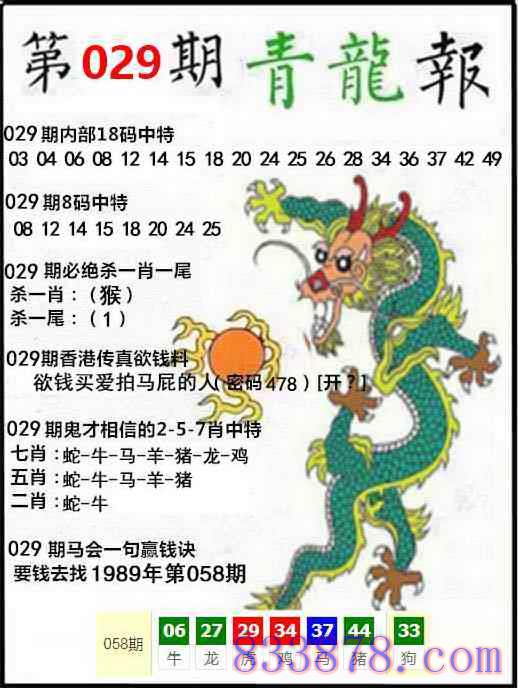 第029期青龍報
029期内部18码中特
03 04 06 08 12 14 15 18 20 24 25 26 28 34 36 37 42 49
029期8码中特
08 12 14 15 18 20 24 25
029 期必绝杀一肖一尾
杀一肖：（猴）
杀一尾：（1）
029期香港传真欲钱料
欲钱买爱拍马屁的人(密码478)[开？]
029期鬼才相信的2-5-7肖中特
七肖：蛇-牛-马-羊-猪-龙-鸡
五肖：蛇-牛-马-羊-猪
二肖：蛇-牛
029 期马会一句赢钱诀
要钱去找1989年第058期
058期 06 27 29 34 37 44 33
牛 龙 虎 鸡 马 猪 狗
833878.com